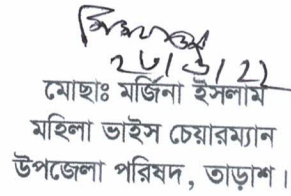 ২৮/৩/২২
মোছাঃ মর্জিনা ইসলাম
মহিলা ভাইস চেয়ারম্যান
উপজেলা পরিষদ, তাড়াশ।